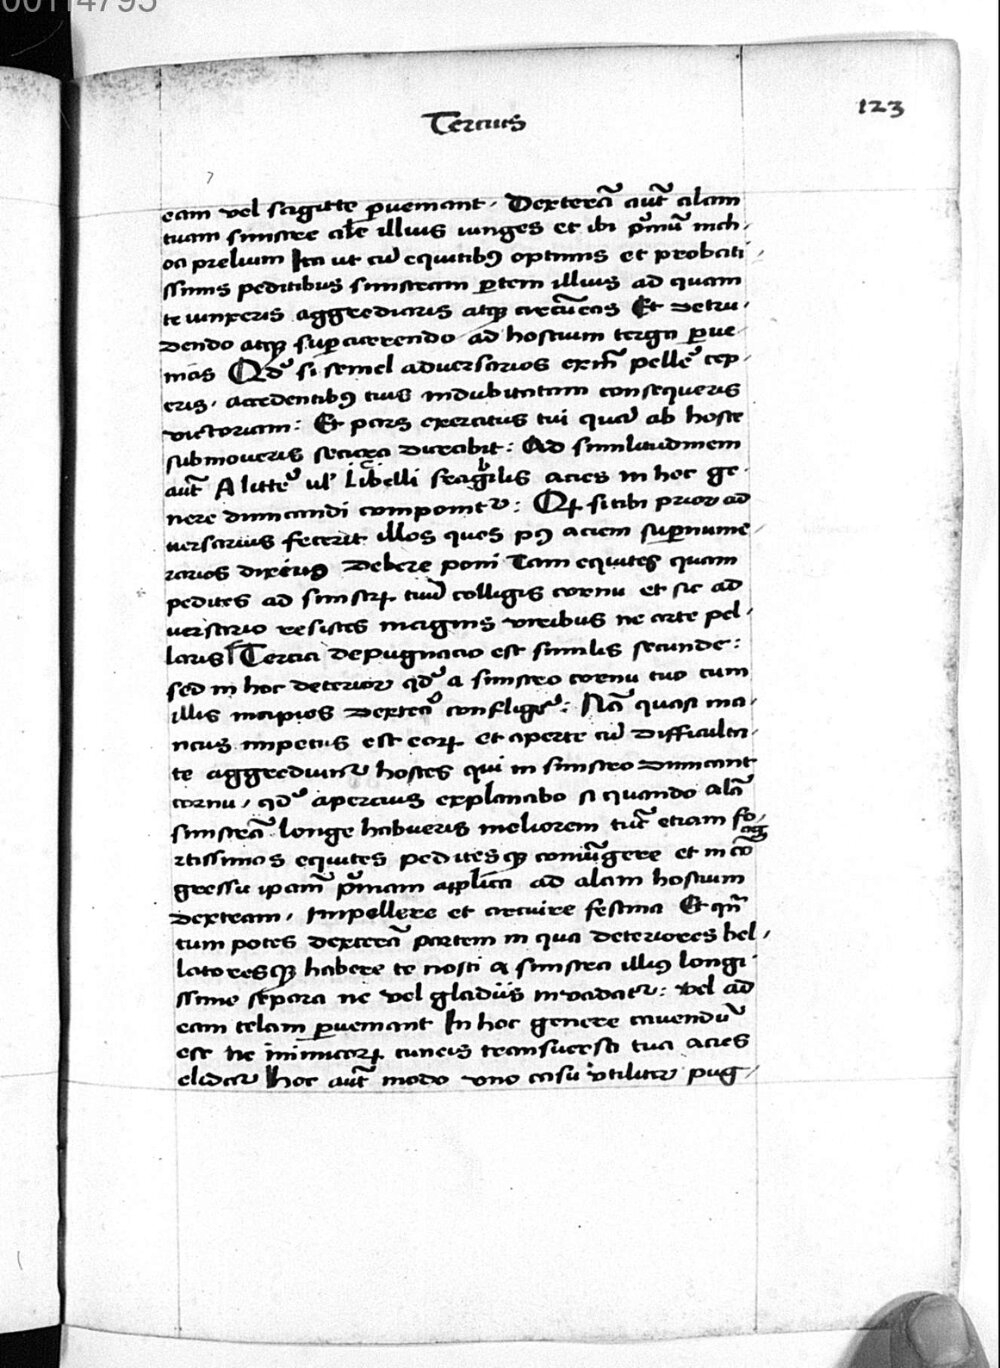 00114795
Tercius
123
eam vel sagitte ꝑueniant. Dexterā aūt alam
tuam sinistre ale illius iunges et ibi pͥmū inch,
oa prelium Ita ut cū equitibꝰ optimis et probati,
ssimis peditibus sinistram ꝑtem illius ad quam
te iunxeris aggrediaris atqꝫ circūeas Et detru,
dendo atqꝫ suꝑcurrendo ad hostium terga ꝑue,
nias Qdͥ si semel adversarios exin̄ pelleͬ cep,
eris, accedentibꝰ tuis indubitatam consequeris
victoriam: Et pars exercitus tui quā ab hoste
submoveris secura durabit: Ad similitudinem
aūt A litteͬ ul' libelli feagrilis acies in hoc ge,
nere dimicandi componitͬ: Qꝫ si tibi prior ad
versarius fecerit illos quos pꝰ aciem suꝑnume,
rarios diximꝰ debere poni Tam equites quam
pedites ad sinistrꝝ tuū colligis cornu et sic ad
versario resistes magnis viribus ne arte pel,
laris Tercia depugnacio est similis secunde:
sed in hoc deterior qdͥ a sinistro cornu tuo cum
illis incipios dexteͦ confligeͬ: Nā quasi ma,
ncus impetus est eorꝝ et aperte cū difficulta,
te aggrediunͬ hostes qui in sinistro dimicant
cornu, qdͥ apercius explanabo si quando alā
sinistrā longe habueris meliorem tūc etiam fo,
rtissimos equites peditesqꝫ coniūgere et in cō
gressu ipam̄ pͥmam applica ad alam hostium
dextram, Impellere et circuire festina Et qn̄
tum potes dexterā partem in qua deteriores bel,
latoresqꝫ habere te nosti a sinistra illiꝰ longi,
ssime separa ne vel gladiis invadatͬ: vel ad
eam telam ꝑueniant In hoc genere cavendū
est ne inimicorꝝ cuneis transuersa tua acies
elidatͬ Hoc aūt modo uno casu utiliter pug,